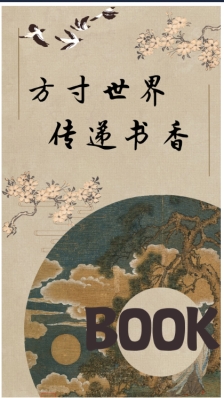 方寸世界
传递书香
BOOK